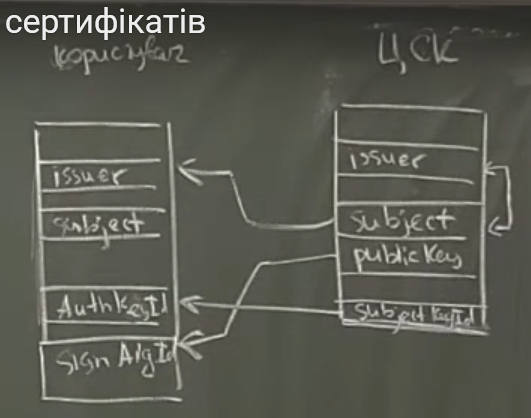 сертифікатів
користувач
ЦСК
issuer
subject
AuthKeyId
Sign AlgId
issuer
subject
publicKey
subjectKeyId